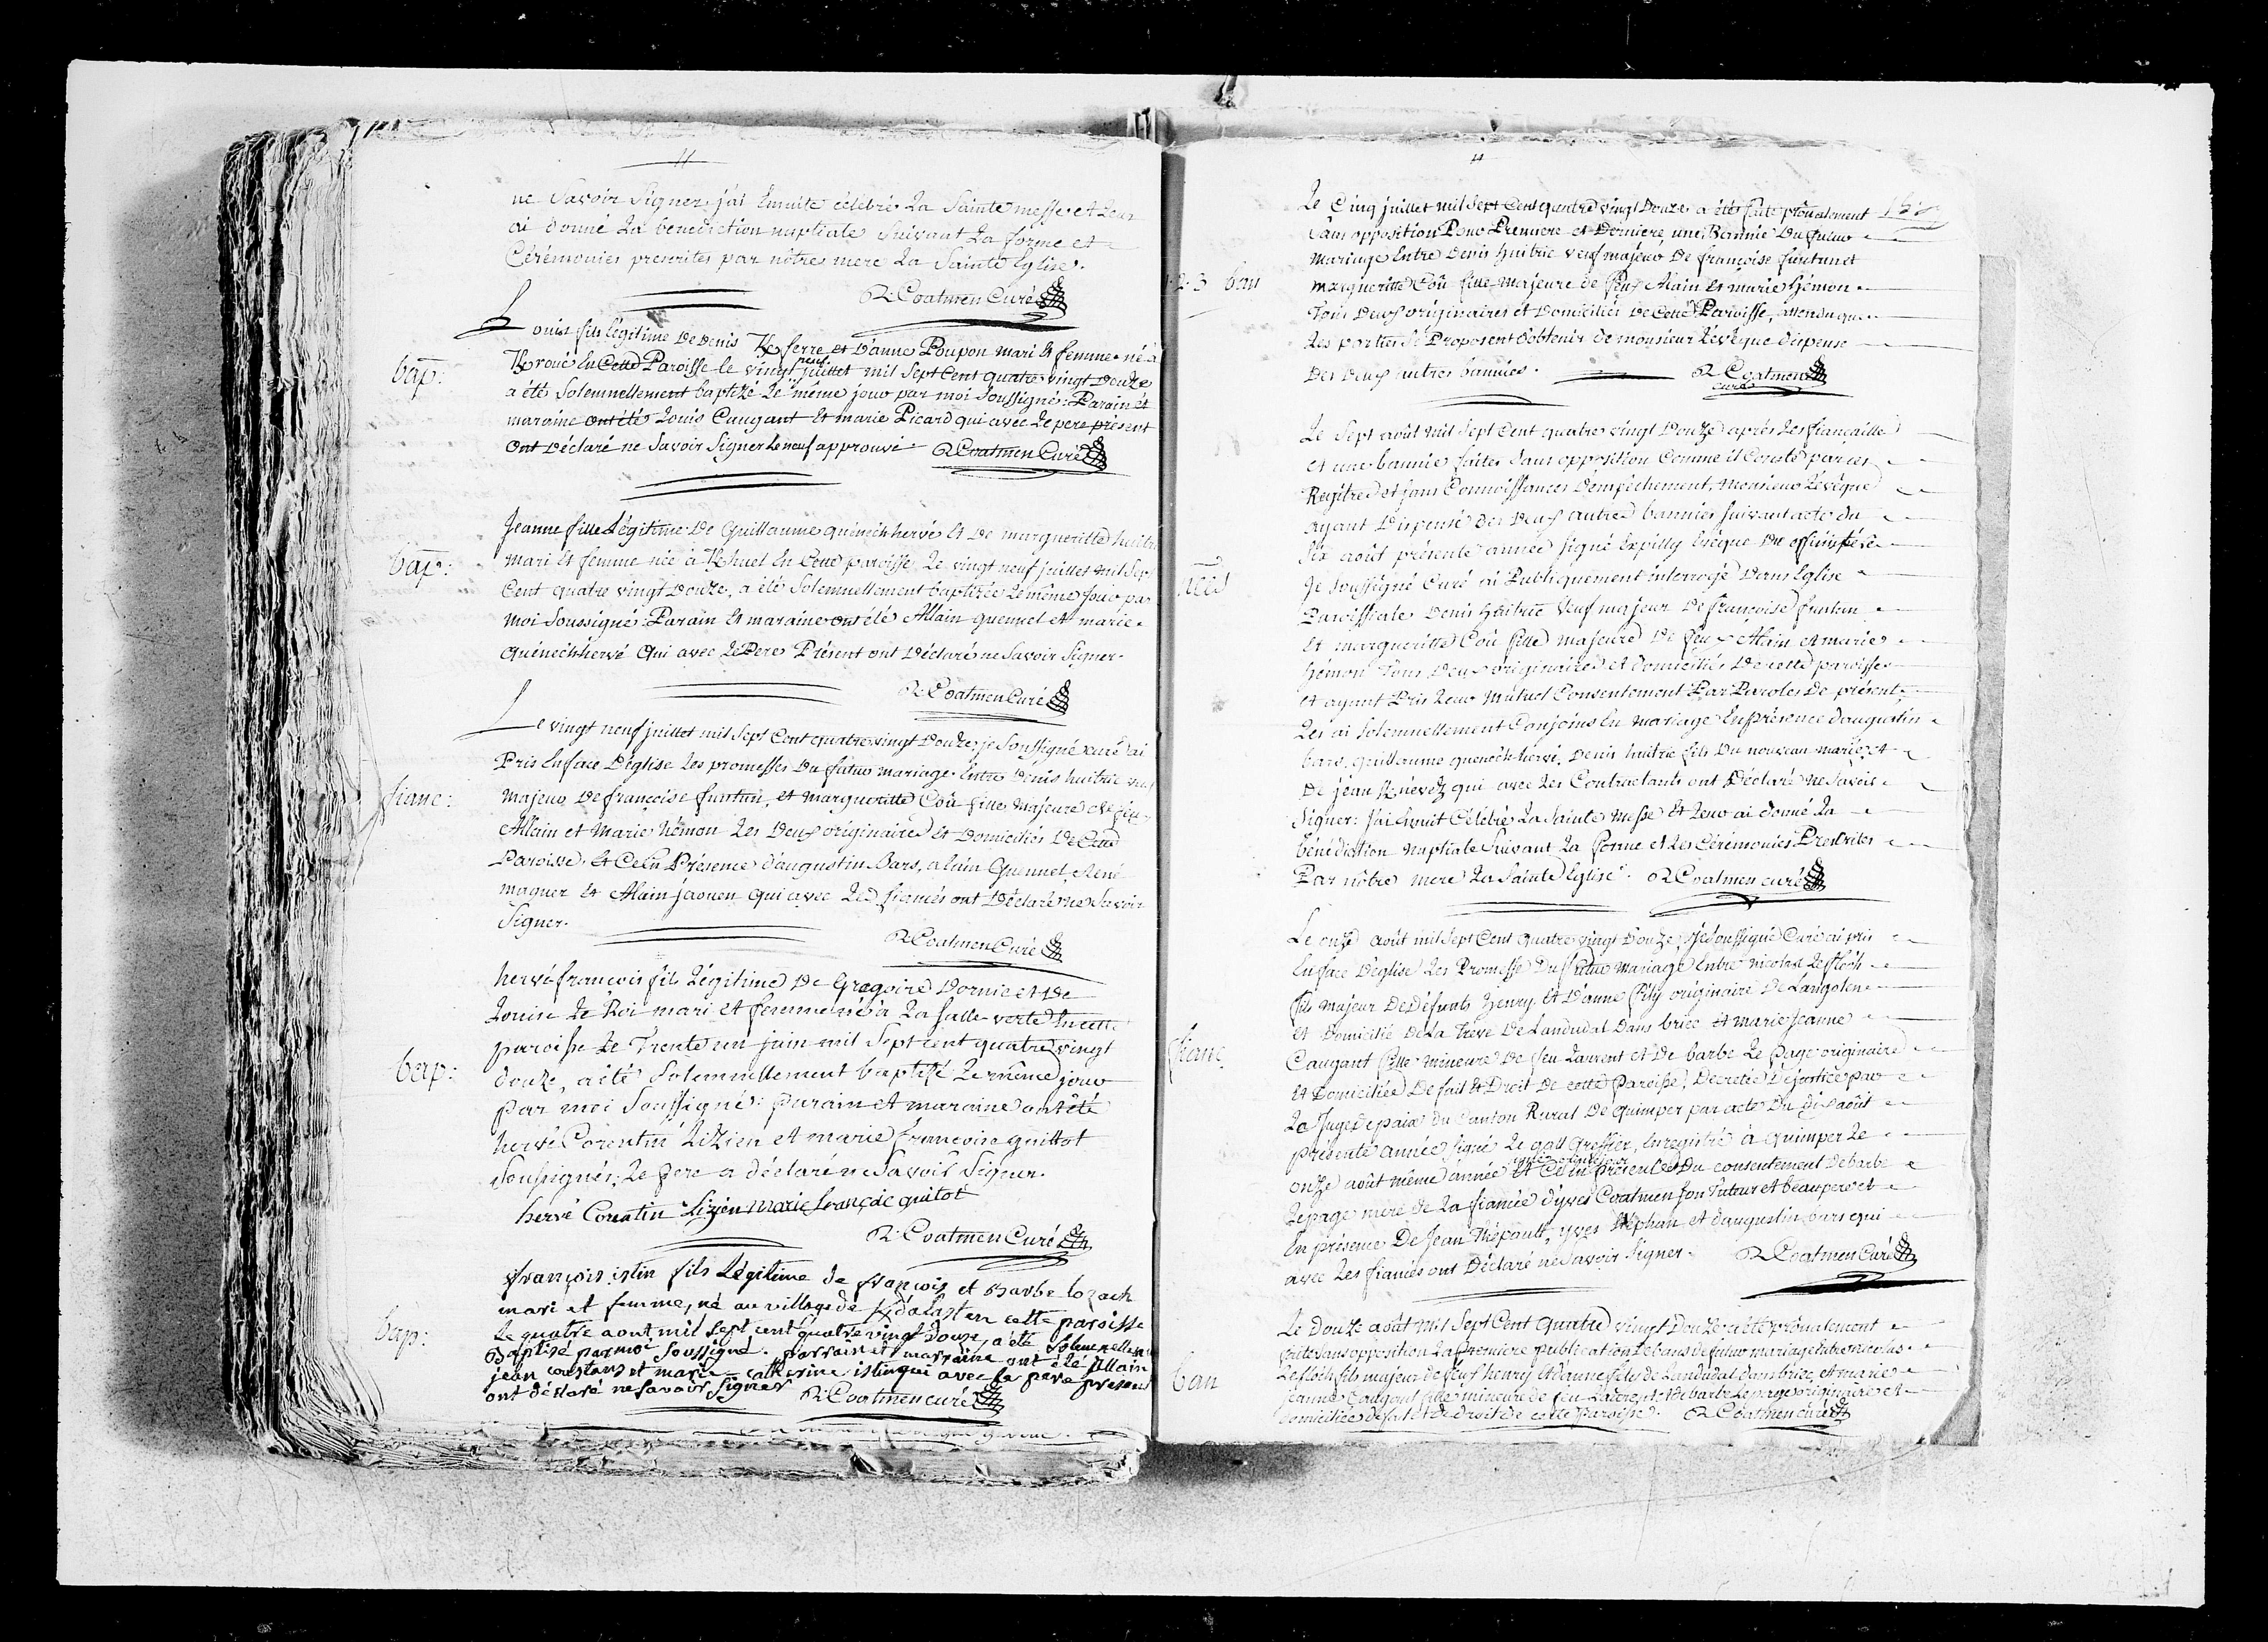 ne Savoir Signer. j'ai Ensuite célébré La Sainte messe et Leur
ai donné La bénédiction nuptiale suivant La forme et
Cérémonies prescrites par nôtre mere La Sainte Eglise.
R. Coatmen Curé
bap:
Louis fils légitime De Denis Kferre et D'anne Poupon mari et femme né à
Kvoué En Cette Paroisse le vingt neuf juillet mil Sept Cent quatre vingt Douze
a été Solemnellement baptizé Le même jour par moi Soussigné: Parain et
maraine ont été Louis Caugant et marie Picard qui avec Le pere présent
ont Déclaré ne Savoir Signer Le neuf approuvé. R Coatmen Curé
bap:
Jeanne fille Légitime De Guillaume quénéchhervé et De margueritte huitric
mari et femme née à Khuel En Cette paroisse Le vingt neuf juillet mil Sept
Cent quatre vingt Douze, a été Solemnellement baptizée Le même jour par
moi Soussigné: Parain et maraine ont été Allain quennel et marie
Quénéchhervé Qui avec Le Pere Présent ont Déclaré ne Savoir Signer.
R. Coatmen Curé
fianc:
Le vingt neuf juillet mil Sept Cent quatre vingt Douze je Soussigné curé ai
Pris En face D'église Les promesses Du futur mariage Entre Denis huitric veuf
majeur De françoise funtun, et margueritte Coü fille majeure De feu
Allain et Marie hémon Les Deux originaires et Domiciliés De Cette
Paroisse. Et Ce En Présence d'augustin Bars, alain Quennel, René
maguer et Alain jaouen qui avec Les fiancés ont Déclaré ne Savoir
Signer.
R Coatmen Curé
bap:
hervé françois fils Légitime De Gregoire Dornic et De
Louise Le Roi mari et femme né à La Salle verte En cette
paroisse Le Trente un juin mil Sept cent quatre vingt
douze, a été Solemnellement baptizé Le même jour
par moi Soussigné: parain et maraine ont été
hervé Corentin Lizien et marie françoise guittot
Soussignés; Le pere a déclaré ne Savoir Signer.
hervé Corentin Lizien marie françoise guitot
R. Coatmen Curé
bap:
françois istin fils Légitime de françois et Barbe lozach
mari et femme, né au village de Kdalast en cette paroisse
Le quatre aout mil Sept cent quatre vingt Douze, a été Solemnellement
Baptisé par moi Soussigné. parrain et marraine ont été Allain
jean coustans et marie catherine istin qui avec le pere present
ont déclaré ne Savoir Signer R. Coatmen curé
1 2 3 ban
Le Cinq juillet mil Sept Cent quatre vingt Douze a été faite prônalement
Sans opposition Pour Premiere et Derniere, une Bannie Du futur
Mariage Entre Denis huitric veuf majeur De françoise funtun et
margueritte Coü fille majeure de feus Alain et marie hémon
Tous Deux originaires et Domiciliés De Cette Paroisse, attendu que
Les parties Se Proposent d'obtenir de monsieur L'évêque dispense
Des Deux autres bannies. R Coatmen
curé
Le Sept août mil Sept Cent quatre vingt Douze après Les fiançailles
et une bannie faites Sans opposition Comme il Conste par ces
Regîtres et Sans Connoissances d'empêchement, monsieur L'évêque
ayant Dispensé des Deux autres bannies suivant acte du
Six août présente année Signé Expilly Evêque Du finistére
Je Soussigné Curé ai Publiquement interrogé Dans L'Eglise
Paroissiale Denis huitric veuf majeur De françoise funtun
et margueritte Coü fille majeure De feux Alain et marie
hémon Tous Deux originaires et domiciliés De cette paroisse
et ayant Pris Leur Mutuel Consentement Par Paroles De présent
Les ai Solemnellement Conjoins En mariage En présence d'augustin
bars, guillaume quénéchhervé, Denis huitric fils Du nouveau marié et
De jean Kénévez qui avec Les Contractants ont Déclaré ne Savoir
Signer: J'ai Ensuit Célébré La Sainte messe et Leur ai donné La
bénédiction Nuptiale Suivant La forme et Les Cérémonies Prescrites
Par nôtre mere La Sainte Eglise. R Coatmen curé
fianc
Le onze août mil Sept Cent quatre vingt Douze, Je Soussigné Curé ai pris
En face D'église Les Promesses Du futur Mariage Entre Nicolas Le floch
fils majeur De Défunts henry et D'anne fily originaire De Langolen
et Domicilié De La Trève De Landudal Dans briec et marie Jeanne
Caugant fille mineure De feu Laurent et De barbe Le page originaire
et Domiciliée De fait et Droit De cette Paroisse, Décretée De justice par
Le Juge De paix du Canton Rural De quimper par acte Du dix août
présente année Signé Le gall Greffier, Enregistré à quimper Le
onze août même année et Ce En présence et Du consentement De barbe
Le page mere de La fiancée d'yves Coatmen son Tuteur et beau pere et
En présence De Jean Thépault, yves Stéphan et d'augustin bars qui
avec Les fiancés ont Déclaré ne Savoir Signer. R Coatmen Curé
ban
Le Douze août Mil Sept Cent quatre vingt Douze a été prônalement
faite Sans opposition La Premiere publication De bans De futur mariage Entre Nicolas
Le floch fils majeur de feux henry et d'anne fily de Landudal dans briec, et marie
jeanne Caugant fille mineure de feu Laurent et De barbe Le page originaire et
domiciliée de fait et De droit de cette paroisse. R Coatmen curé